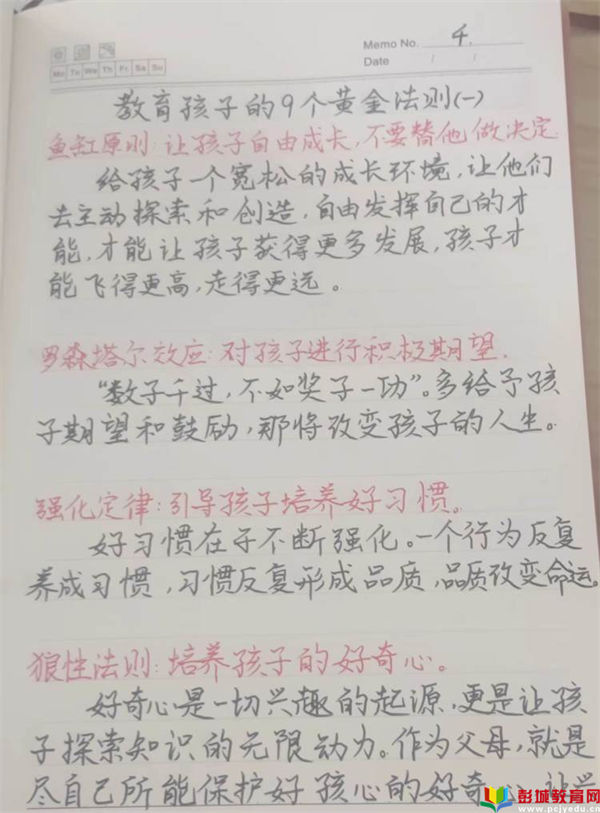 Memo No. 4.
Mo Tu We Th Fr Sa Su
Date / /
教育孩子的9个黄金法则(一)
鱼缸原则:让孩子自由成长,不要替他做决定
给孩子一个宽松的成长环境,让他们
去主动探索和创造,自由发挥自己的才
能,才能让孩子获得更多发展,孩子才
能飞得更高,走得更远。
罗森塔尔效应:对孩子进行积极期望.
“数子千过,不如奖子一功”。多给予孩
子期望和鼓励,那将改变孩子的人生。
强化定律:引导孩子培养好习惯。
好习惯在于不断强化。一个行为反复
养成习惯,习惯反复形成品质,品质改变命运。
狼性法则:培养孩子的好奇心。
好奇心是一切兴趣的起源,更是让孩
子探索知识的无限动力。作为父母,就是
尽自己所能保护好孩心的好奇
彭城教育网
www.pcjyedu.cn